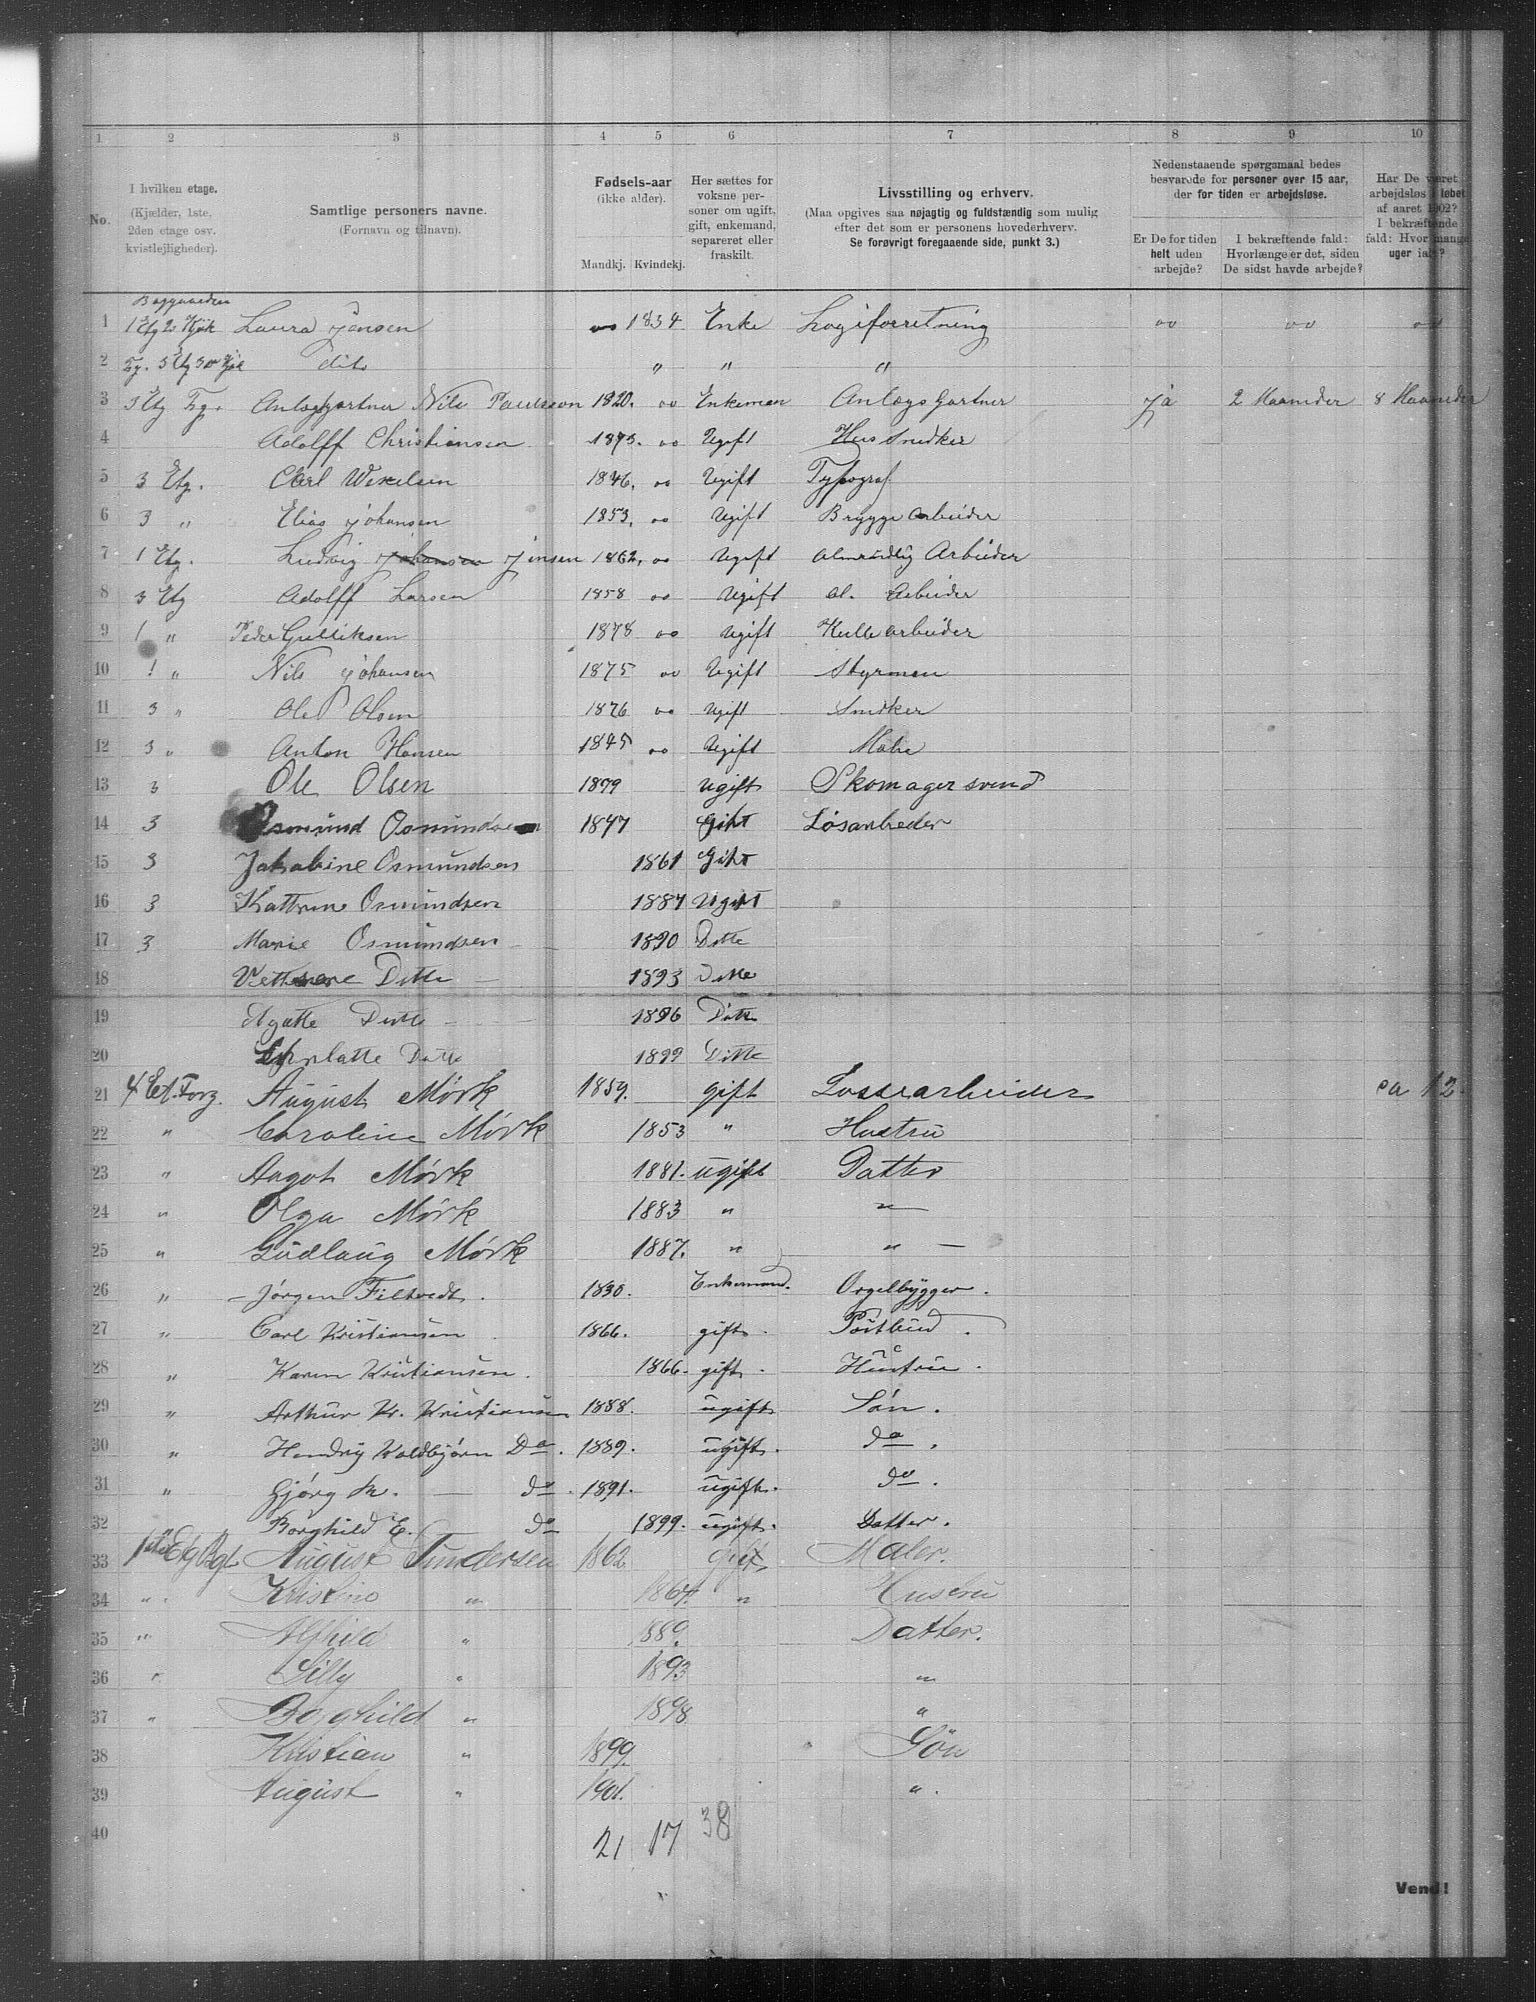 1 2 3 4 5 6 7 8 9 10
No.
I hvilken etage. (Kjælder, 1ste, 2den etage osv. kvistlejligheder).
Samtlige personers navne. (Fornavn og tilnavn).
Fødsels-aar (ikke alder).
Mandkj. Kvindekj.
Her sættes for voksne personer om ugift, gift, enkemand, separeret eller fraskilt.
Livsstilling og erhverv. (Maa opgives saa nøjagtig og fuldstændig som mulig efter det som er personens hovederhverv. Se forøvrigt foregaaende side, punkt 3.)
Nedenstaaende spørgsmaal bedes besvarede for personer over 15 aar, der for tiden er arbejdsløse.
Er De for tiden helt uden arbejde?
I bekræftende fald: Hvorlænge er det, siden De sidst havde arbejde?
Har De været arbejdsløs i løbet af aaret 1902? I bekræftende fald: Hvor mange uger ialt?
Baggaarden
1 1 Etg 2 Kjøk Laura Jansen 1834 Enke Logiforretning
2 dito " " "
3 3 Etg Anlægsgartner Nils Paulsson 1820. Enkeman Anlægs Gartner ja 2 Maaneder 8 Maaneder
4 Adolff Christiansen 1873. Ugift Hus Snedker
5 3 Etg. Carl Wexelsen 1846. Ugift Typograf
6 3 " Elias Johansen 1853. Ugift Brygge Arbeider
7 1 Etg. Ludvig Johansen Jensen 1862. Ugift Almindlig Arbeider
8 3 Etg Adolff Larsen 1858 Ugift al. Arbeider
9 1 " Peder Gulliksen 1878 Ugift Kullearbeider
10 1 " Nils Johansen 1875 Ugift Styrman
11 3 " Ole P Olsen 1876 Ugift Snedker
12 3 " Anton Hansen 1845 Ugift Maler
13 3 Ole Olsen 1879 Ugift Skomagersvend
14 3 Osmund Osmundsen 1847 Gift Løsarbeder
15 3 Jakobine Osmundsen 1861 Gift
16 3 Kattrine Osmundsen 1887 Ugift
17 3 Marie Osmundsen 1890 Ditte
18 Ditte 1893 Ditte
19 Agatte Ditte 1896 Ditte
20 Ditte 1899 Ditte
21 4 Et. Forg. August Mörk 1859. gift Lossearbeider ca 12.
22 " Caroline Mörk 1853 " Hustru
23 " Aagot Mörk 1881. ugift Datter
24 " Olga Mörk 1883 " "
25 " Gudlaug Mörk 1887. " "
26 " Jørgen Filtvedt. 1830. Enkemand. Orgelbygger.
27 " Carl Kristiansen 1866. gift. Postbud.
28 " Karen Kristiansen. 1866. gift. Hustru.
29 " Arthur Kr. Kristiansen 1888. ugift Søn.
30 " Hendrig Koldbjørn Do. 1889. ugift. do.
31 " Gjørg M. do. 1891. ugift. do.
32 Borghild E. do 1899. ugift. Datter.
33 1ste Etg Bgl August Gundersen 1862 gift Maler.
34 " Kristine " 1864. " Hustru
35 " Alfhild " 1889. Datter.
36 " Lilly " 1893 "
37 " Borghild " 1898 "
38 Kristian " 1899. Søn
39 August " 1901. "
40
21 17 38
Vend!